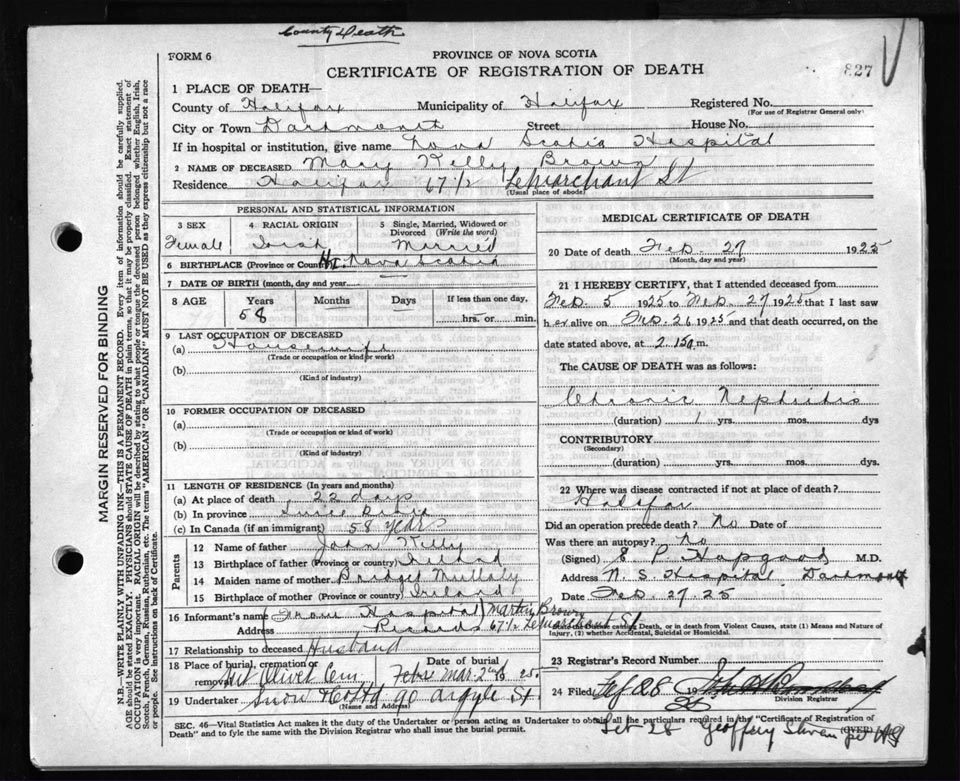 County Death
FORM 6
PROVINCE OF NOVA SCOTIA
CERTIFICATE OF REGISTRATION OF DEATH
827
1 PLACE OF DEATH—
County of Halifax Municipality of Halifax Registered No.
(For use of Registrar General only)
City or Town Dartmouth Street House No.
If in hospital or institution, give name Nova Scotia Hospital
2 NAME OF DECEASED Mary Kelly Brown
Residence Halifax 67 1/2 LeMarchant St
(Usual place of abode)
PERSONAL AND STATISTICAL INFORMATION
3 SEX 4 RACIAL ORIGIN 5 Single, Married, Widowed or Divorced (Write the word)
Female Irish Married
6 BIRTHPLACE (Province or Country) Nova Scotia
7 DATE OF BIRTH (month, day and year)
8 AGE Years Months Days If less than one day,
58 hrs. or min.
9 LAST OCCUPATION OF DECEASED
(a) Housewife
(Trade or occupation or kind of work)
(b)
(Kind of industry)
10 FORMER OCCUPATION OF DECEASED
(a)
(Trade or occupation or kind of work)
(b)
(Kind of industry)
11 LENGTH OF RESIDENCE (In years and months)
(a) At place of death 22 days
(b) In province Since Birth
(c) In Canada (if an immigrant) 58 years
Parents
12 Name of father John Kelly
13 Birthplace of father (Province or country) Ireland
14 Maiden name of mother Bridget Mullaly
15 Birthplace of mother (Province or country) Ireland
16 Informant's name From Hospital Martin Brown
Address Records 67 1/2 LeMarchant St
17 Relationship to deceased Husband
18 Place of burial, cremation or removal Mt Olivet Cem Date of burial Mar. 2nd 1925.
19 Undertaker Snow & Co Ltd 90 Argyle St.
(Name and Address)
MEDICAL CERTIFICATE OF DEATH
20 Date of death Feb. 27 1925
(Month, day and year)
21 I HEREBY CERTIFY, that I attended deceased from
Feb 5 1925 to Feb. 27 1925 that I last saw
her alive on Feb. 26 1925 and that death occurred, on
date stated above, at 2.15 a m.
The CAUSE OF DEATH was as follows:
Chronic Nephritis
(duration) 1 yrs. mos. dys
CONTRIBUTORY
(Secondary)
(duration) yrs. mos. dys.
22 Where was disease contracted if not at place of death?
Halifax
Did an operation precede death? No Date of
Was there an autopsy? No
(Signed) E P Hapgood M.D.
Address N. S. Hospital. Dartmouth
Date Feb. 27. 25
causing Death, or in death from Violent Causes, state (1) Means and Nature of
Injury, (2) whether Accidental, Suicidal or Homicidal.
23 Registrar's Record Number
24 Filed Feb 28 19
25
Division Registrar
SEC. 46—Vital Statistics Act makes it the duty of the Undertaker or person acting as Undertaker to obtain all the particulars required in the "Certificate of Registration of
Death" and to fyle the same with the Division Registrar who shall issue the burial permit.
(OVER)
Feb 28 Geoffrey
MARGIN RESERVED FOR BINDING
N.B.—WRITE PLAINLY WITH UNFADING INK—THIS IS A PERMANENT RECORD. Every item of information should be carefully supplied.
AGE should be stated EXACTLY. PHYSICIANS should STATE CAUSE OF DEATH in plain terms, so that it may be properly classified. Exact statement of
OCCUPATION is very important. RACIAL ORIGIN will be described by stating to what people or tongue the deceased person belonged whether English, Irish,
Scotch, French, German, Russian, Ruthenian, etc. The terms "AMERICAN" OR "CANADIAN" MUST NOT BE USED as they express citizenship but not a race
or people. See instructions on back of Certificate.